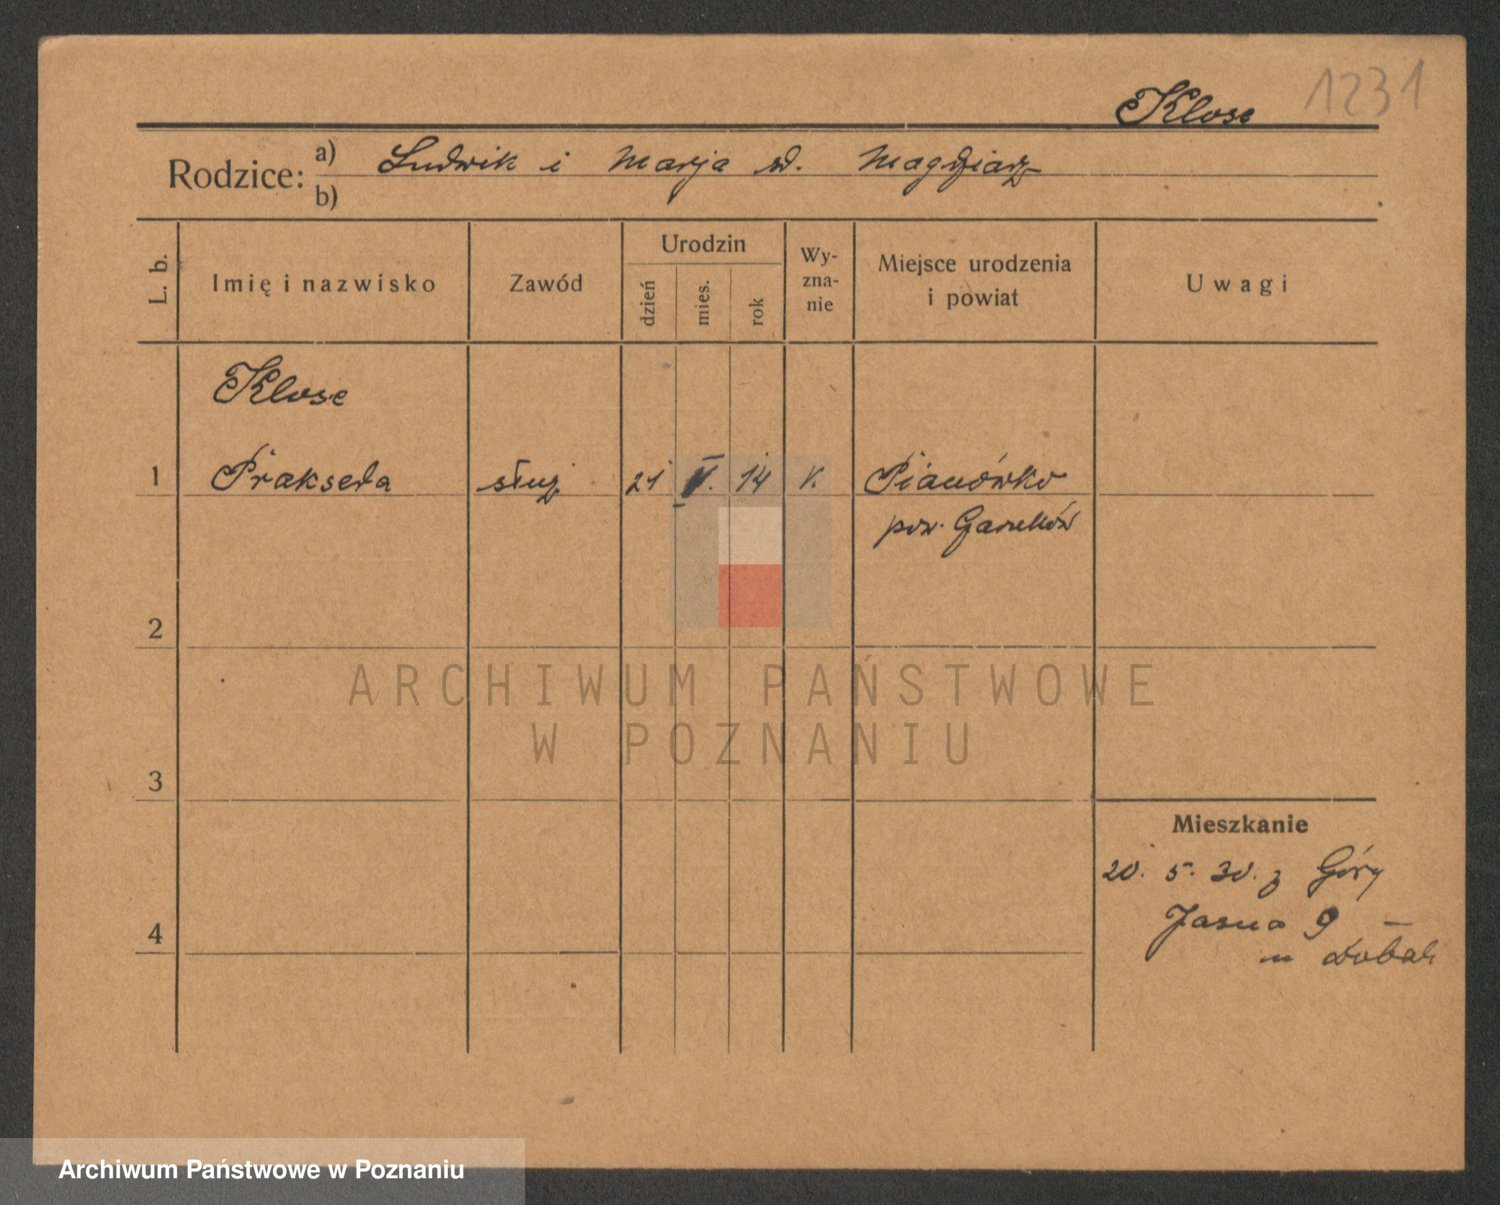 1231
Klose
Rodzice: a) Ludwik i Marja d. Magdziarz
b)
L. b. Imię i nazwisko Zawód Urodzin dzień mies. rok Wy-zna-nie Miejsce urodzenia i powiat Uwagi
Klose
1 Prakseda służ 21 V. 14 k. Pianówko
pow.
2
3
Mieszkanie
20. 5. 30. z Góry
4 Jasna 9
ARCHIWUM PAŃSTWOWE
W POZNANIU
Archiwum Państwowe w Poznaniu